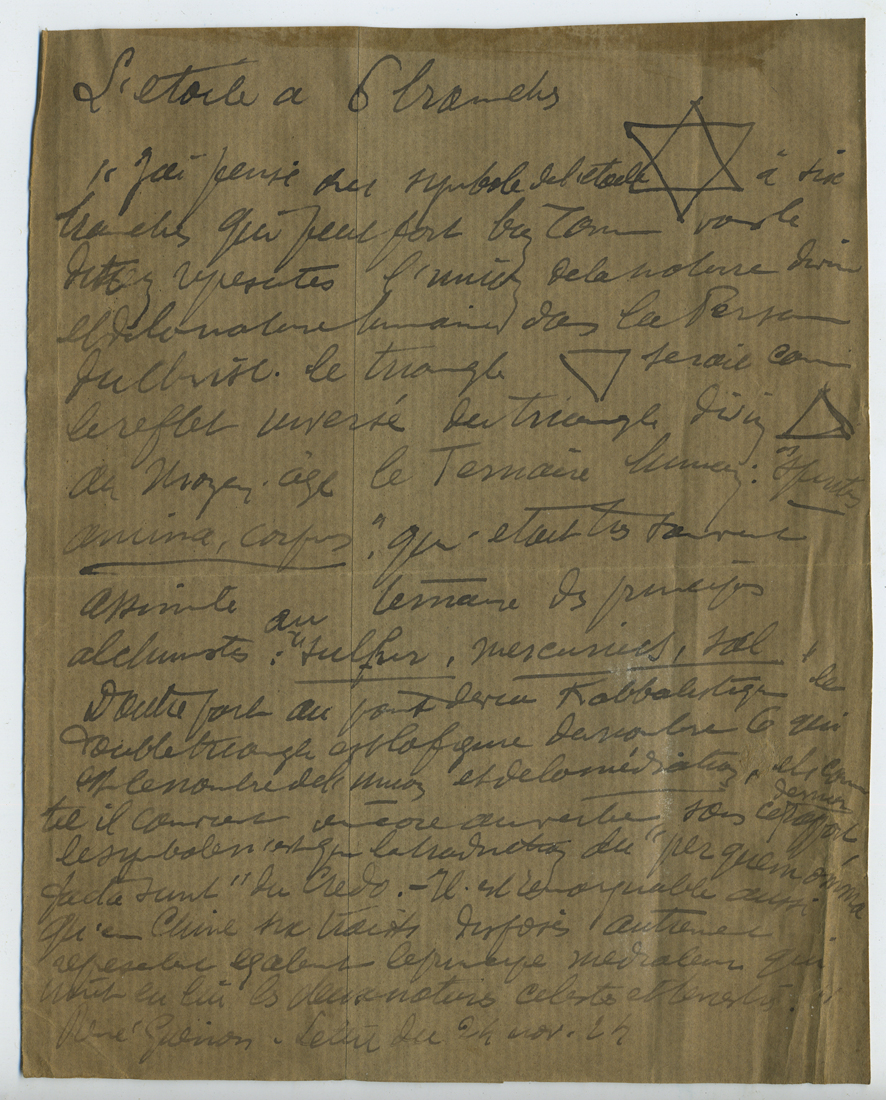 L'étoile a 6 branches
"J'ai pensé au symbole de l'étoile à six
branches qui peut fort bien comme vous le
dites représenter l'union de la nature divine
et de la nature humaine dans la Personne
du Christ. le triangle serait comme
le reflet inversé du triangle divin
au Moyen-age le Ternaire humain : "spiritus
anima, corpus", qui était très souvent
assimilé au ternaire des principes
alchimistes : "sulfur, mercurius, sal"
D'autre part au point de vue Kabbalistique le
double triangle est la figure du nombre 6 qui
est le nombre de l'union et de la médiation, et comme
tel il convient encore au verbe sous ce dernier rapport
le symbole n'est que la traduction du "per quem omnia
facta sunt" du Credo. - Il est remarquable aussi
qu'en Chine six traits disposés autrement
représentent également le principe médiateur qui
unit en lui les deux natures celestes et terrestres."
René Guénon. Lettre du 24 nov. 24